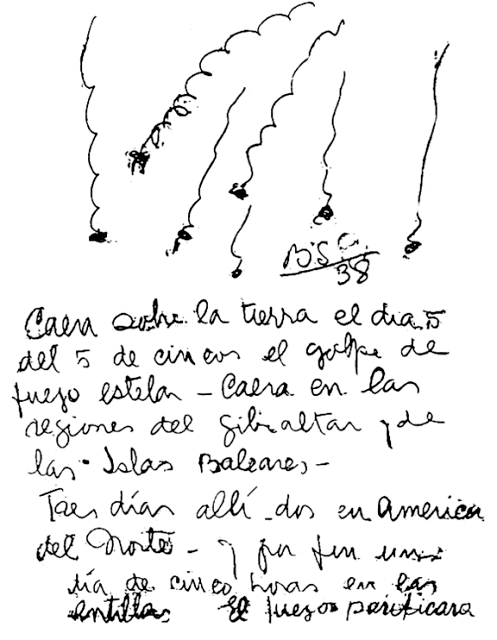 B.S.G.
38
Caera sobre la tierra el dia 5
del 5 de cincos el golpe de
fuego estelar - Caera en las
regiones del Gibraltar y de
las Islas Baleares -
Tres días allí - dos en America
del Norte - y por fin un
día de cinco horas en las
antillas El fuego purificara